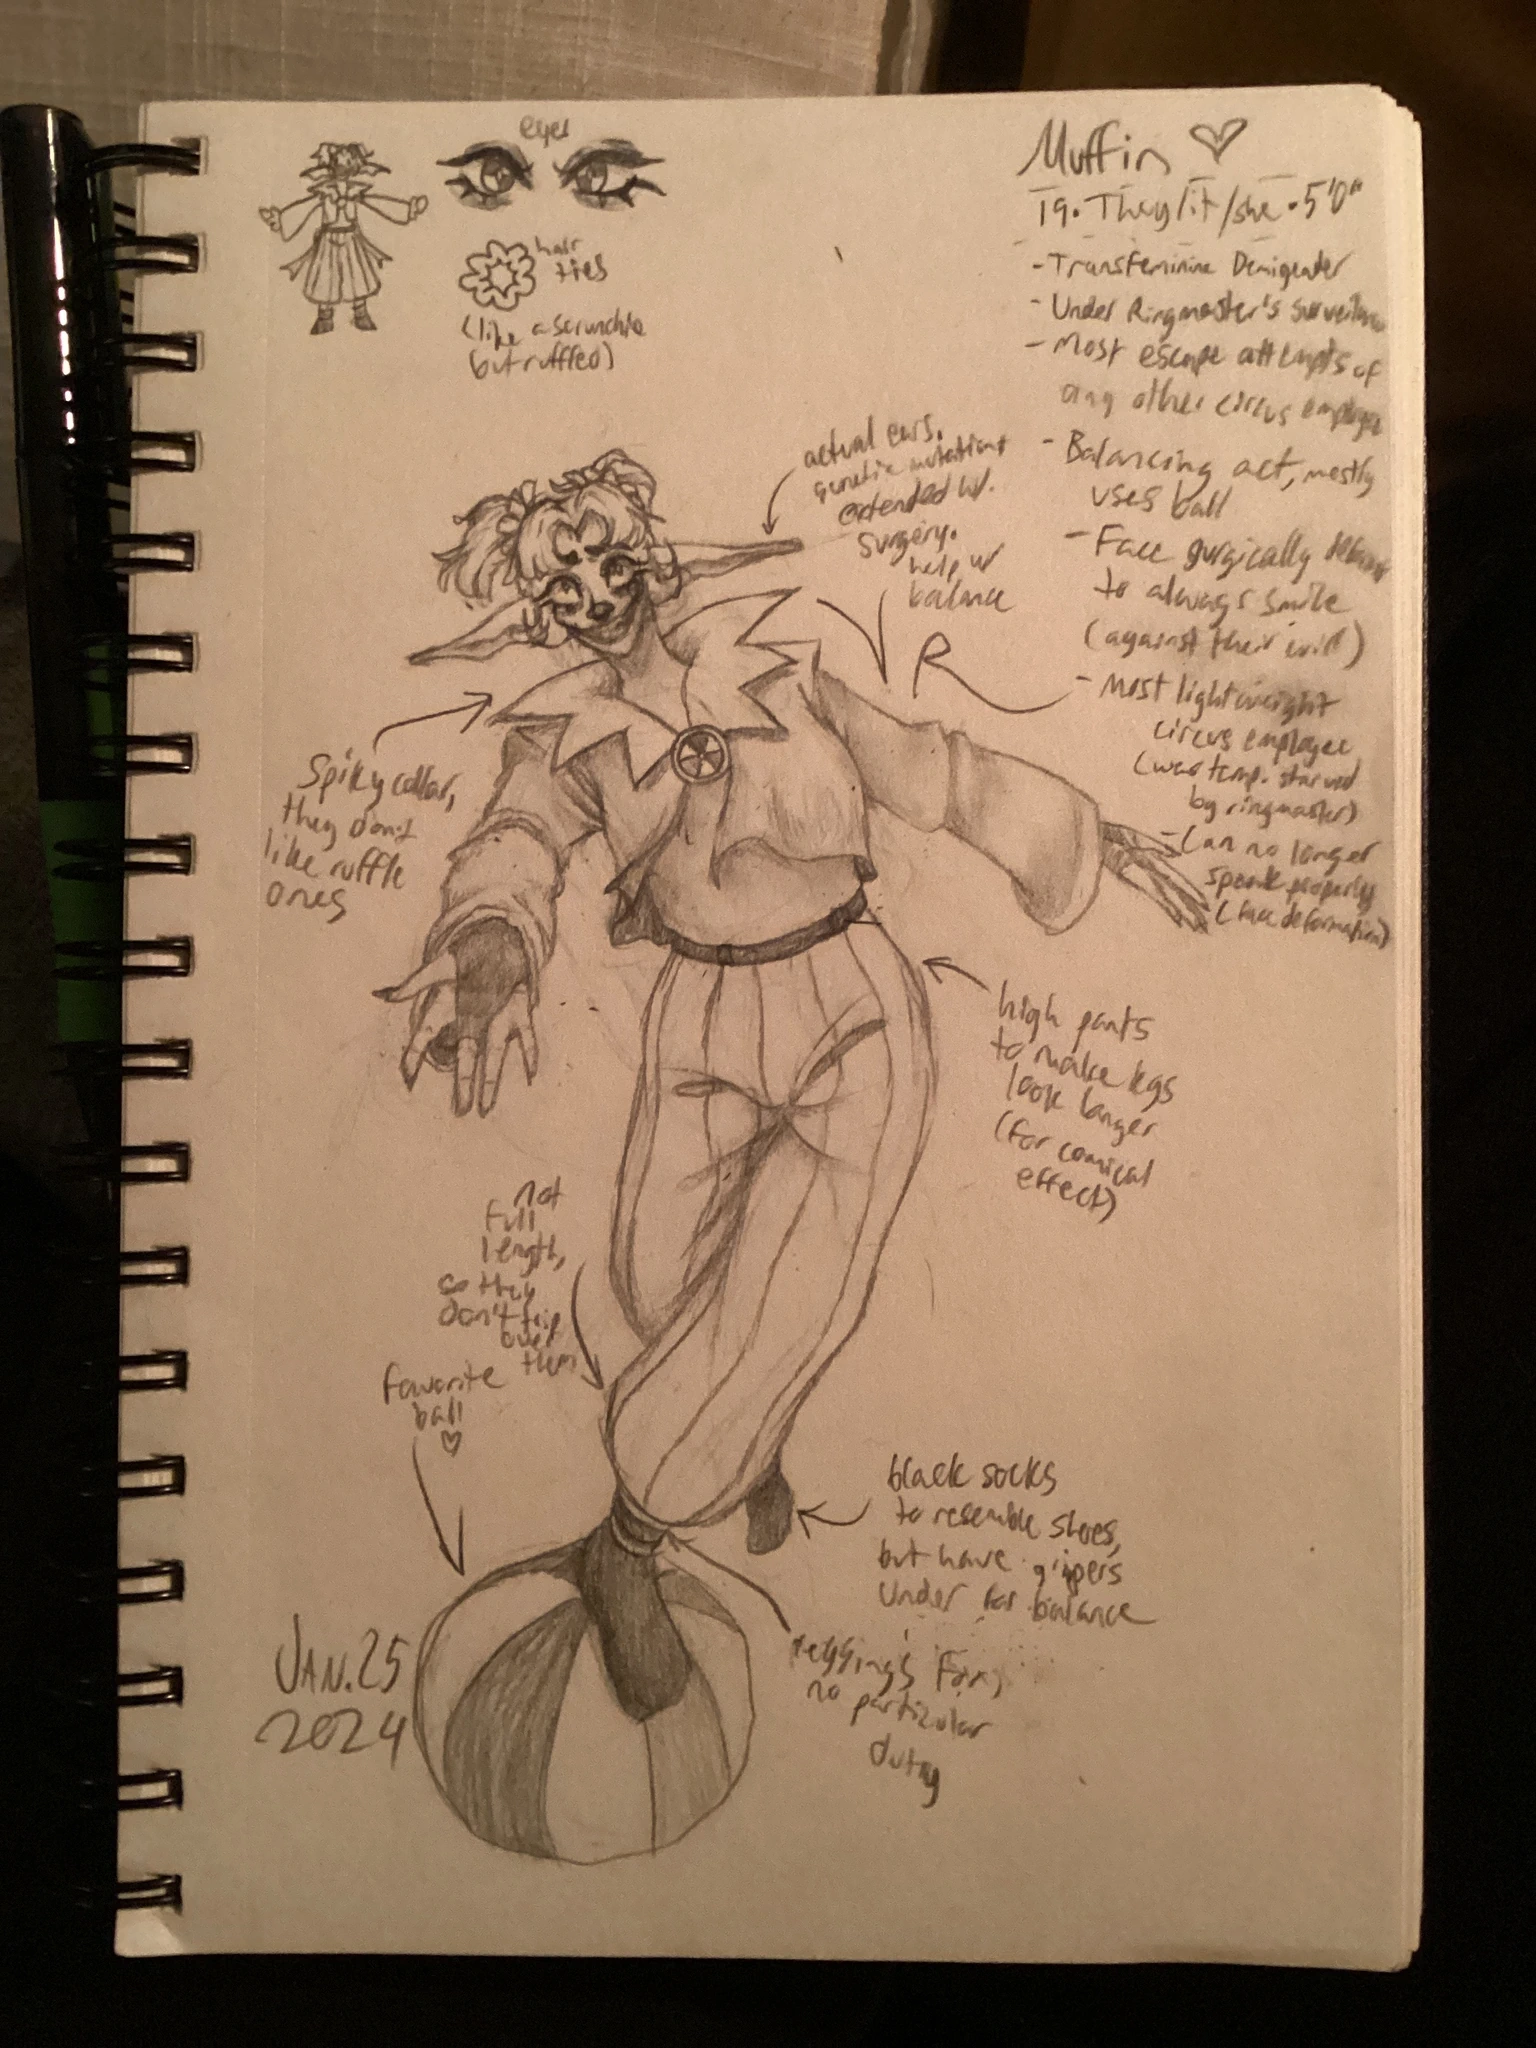 eyes
hair
ties
(like a scrunchie
but ruffled)
Muffin ♡
19. They/it/she. 5'0"
- Transfeminine Demigender
- Under Ringmaster's
- Most escape attempts of
any other circus employee
- Balancing act, mostly
uses ball
- Face surgically
to always smile
(against their will)
- Most lightweight
circus employee
(was temp. starved
by ringmaster)
- Can no longer
speak properly
(face deformation)
actual ears.
genetic mutations
extended w.
surgery.
help w
balance
R
Spiky collar,
they don't
like ruffle
ones
high pants
to make legs
look longer
(for comical
effect)
not
full
length,
so they
don't trip
over
them
favorite
ball
♡
black socks
to resemble shoes,
but have grippers
under for balance
leggings for,
no particular
JAN. 25
2024